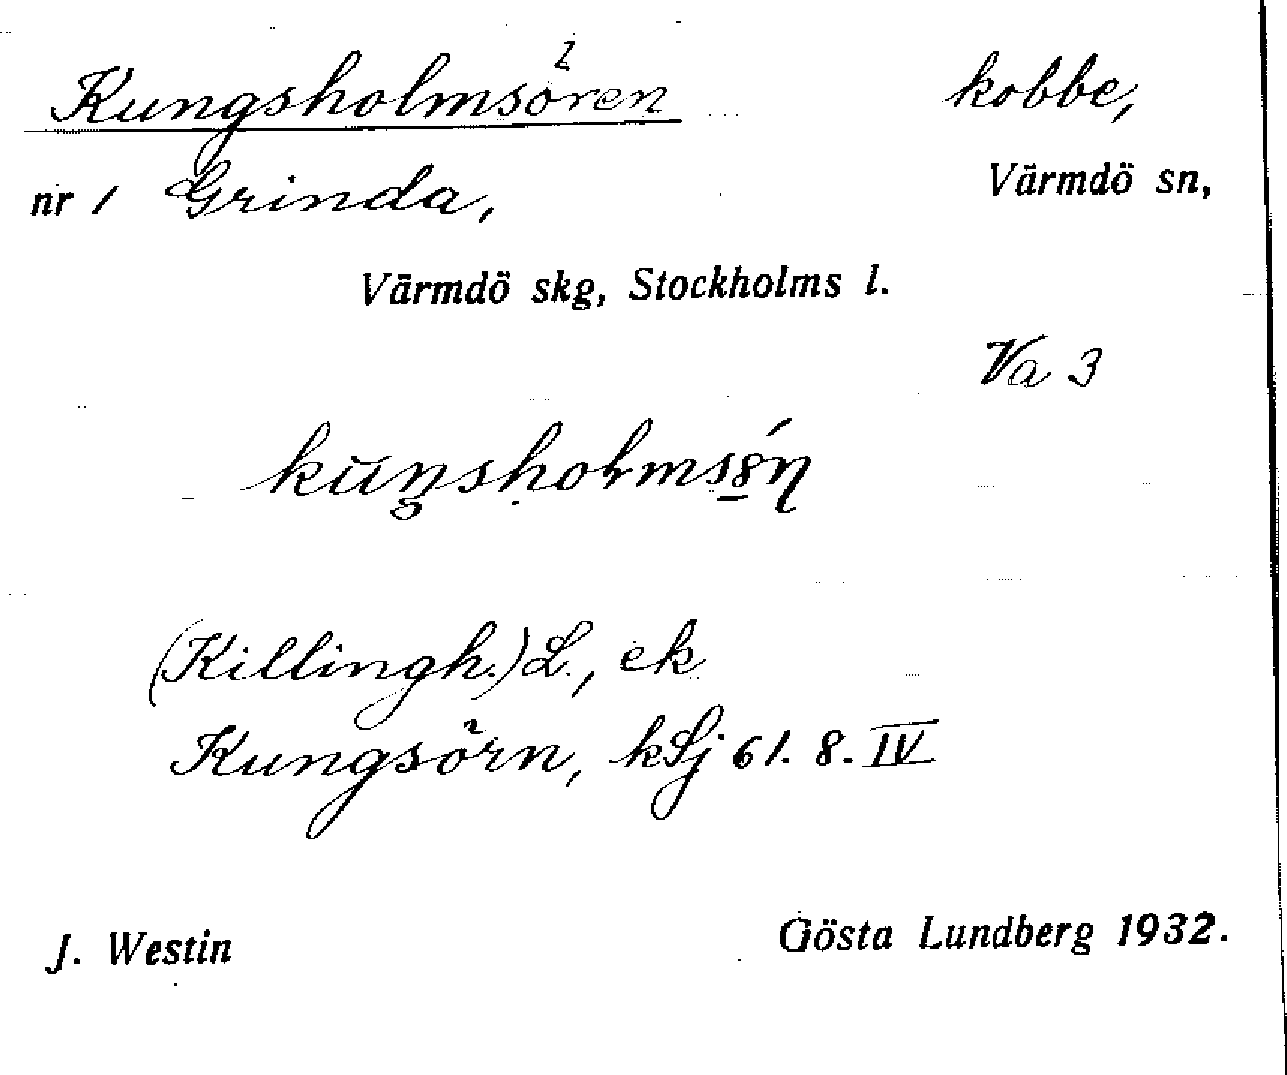 Kungsholmsören kobbe,
nr 1 Grinda, Värmdö sn,
Värmdö skg, Stockholms l.
Va 3
(Killingh.) L., ek
Kungsörn, kSj 61. 8. IV
J. Westin Gösta Lundberg 1932.